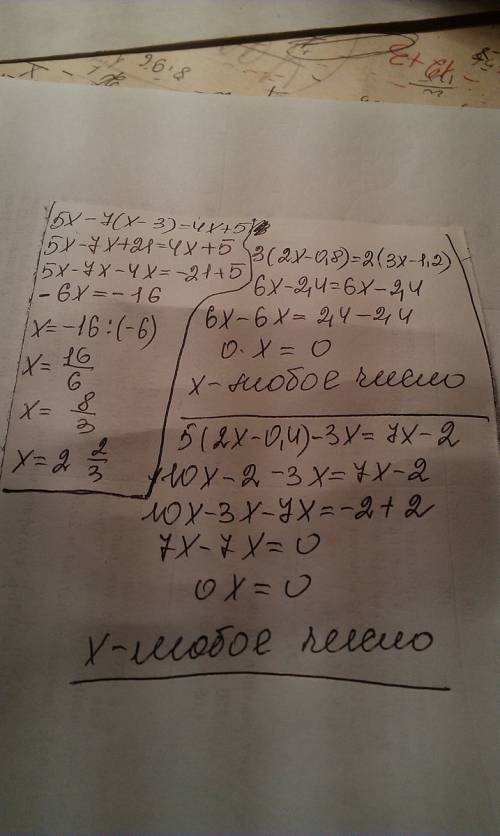 26,8
5x-7(x-3)=4x+5
5x-7x+21=4x+5
5x-7x-4x=-21+5
-6x=-16
x=-16:(-6)
x= 16/6
x= 8/3
x=2 2/3
3(2x-0,8)=2(3x-1,2)
6x-2,4=6x-2,4
6x-6x=2,4-2,4
0·x=0
x-любое число
5(2x-0,4)-3x=7x-2
10x-2-3x=7x-2
10x-3x-7x=-2+2
7x-7x=0
0x=0
x-любое число